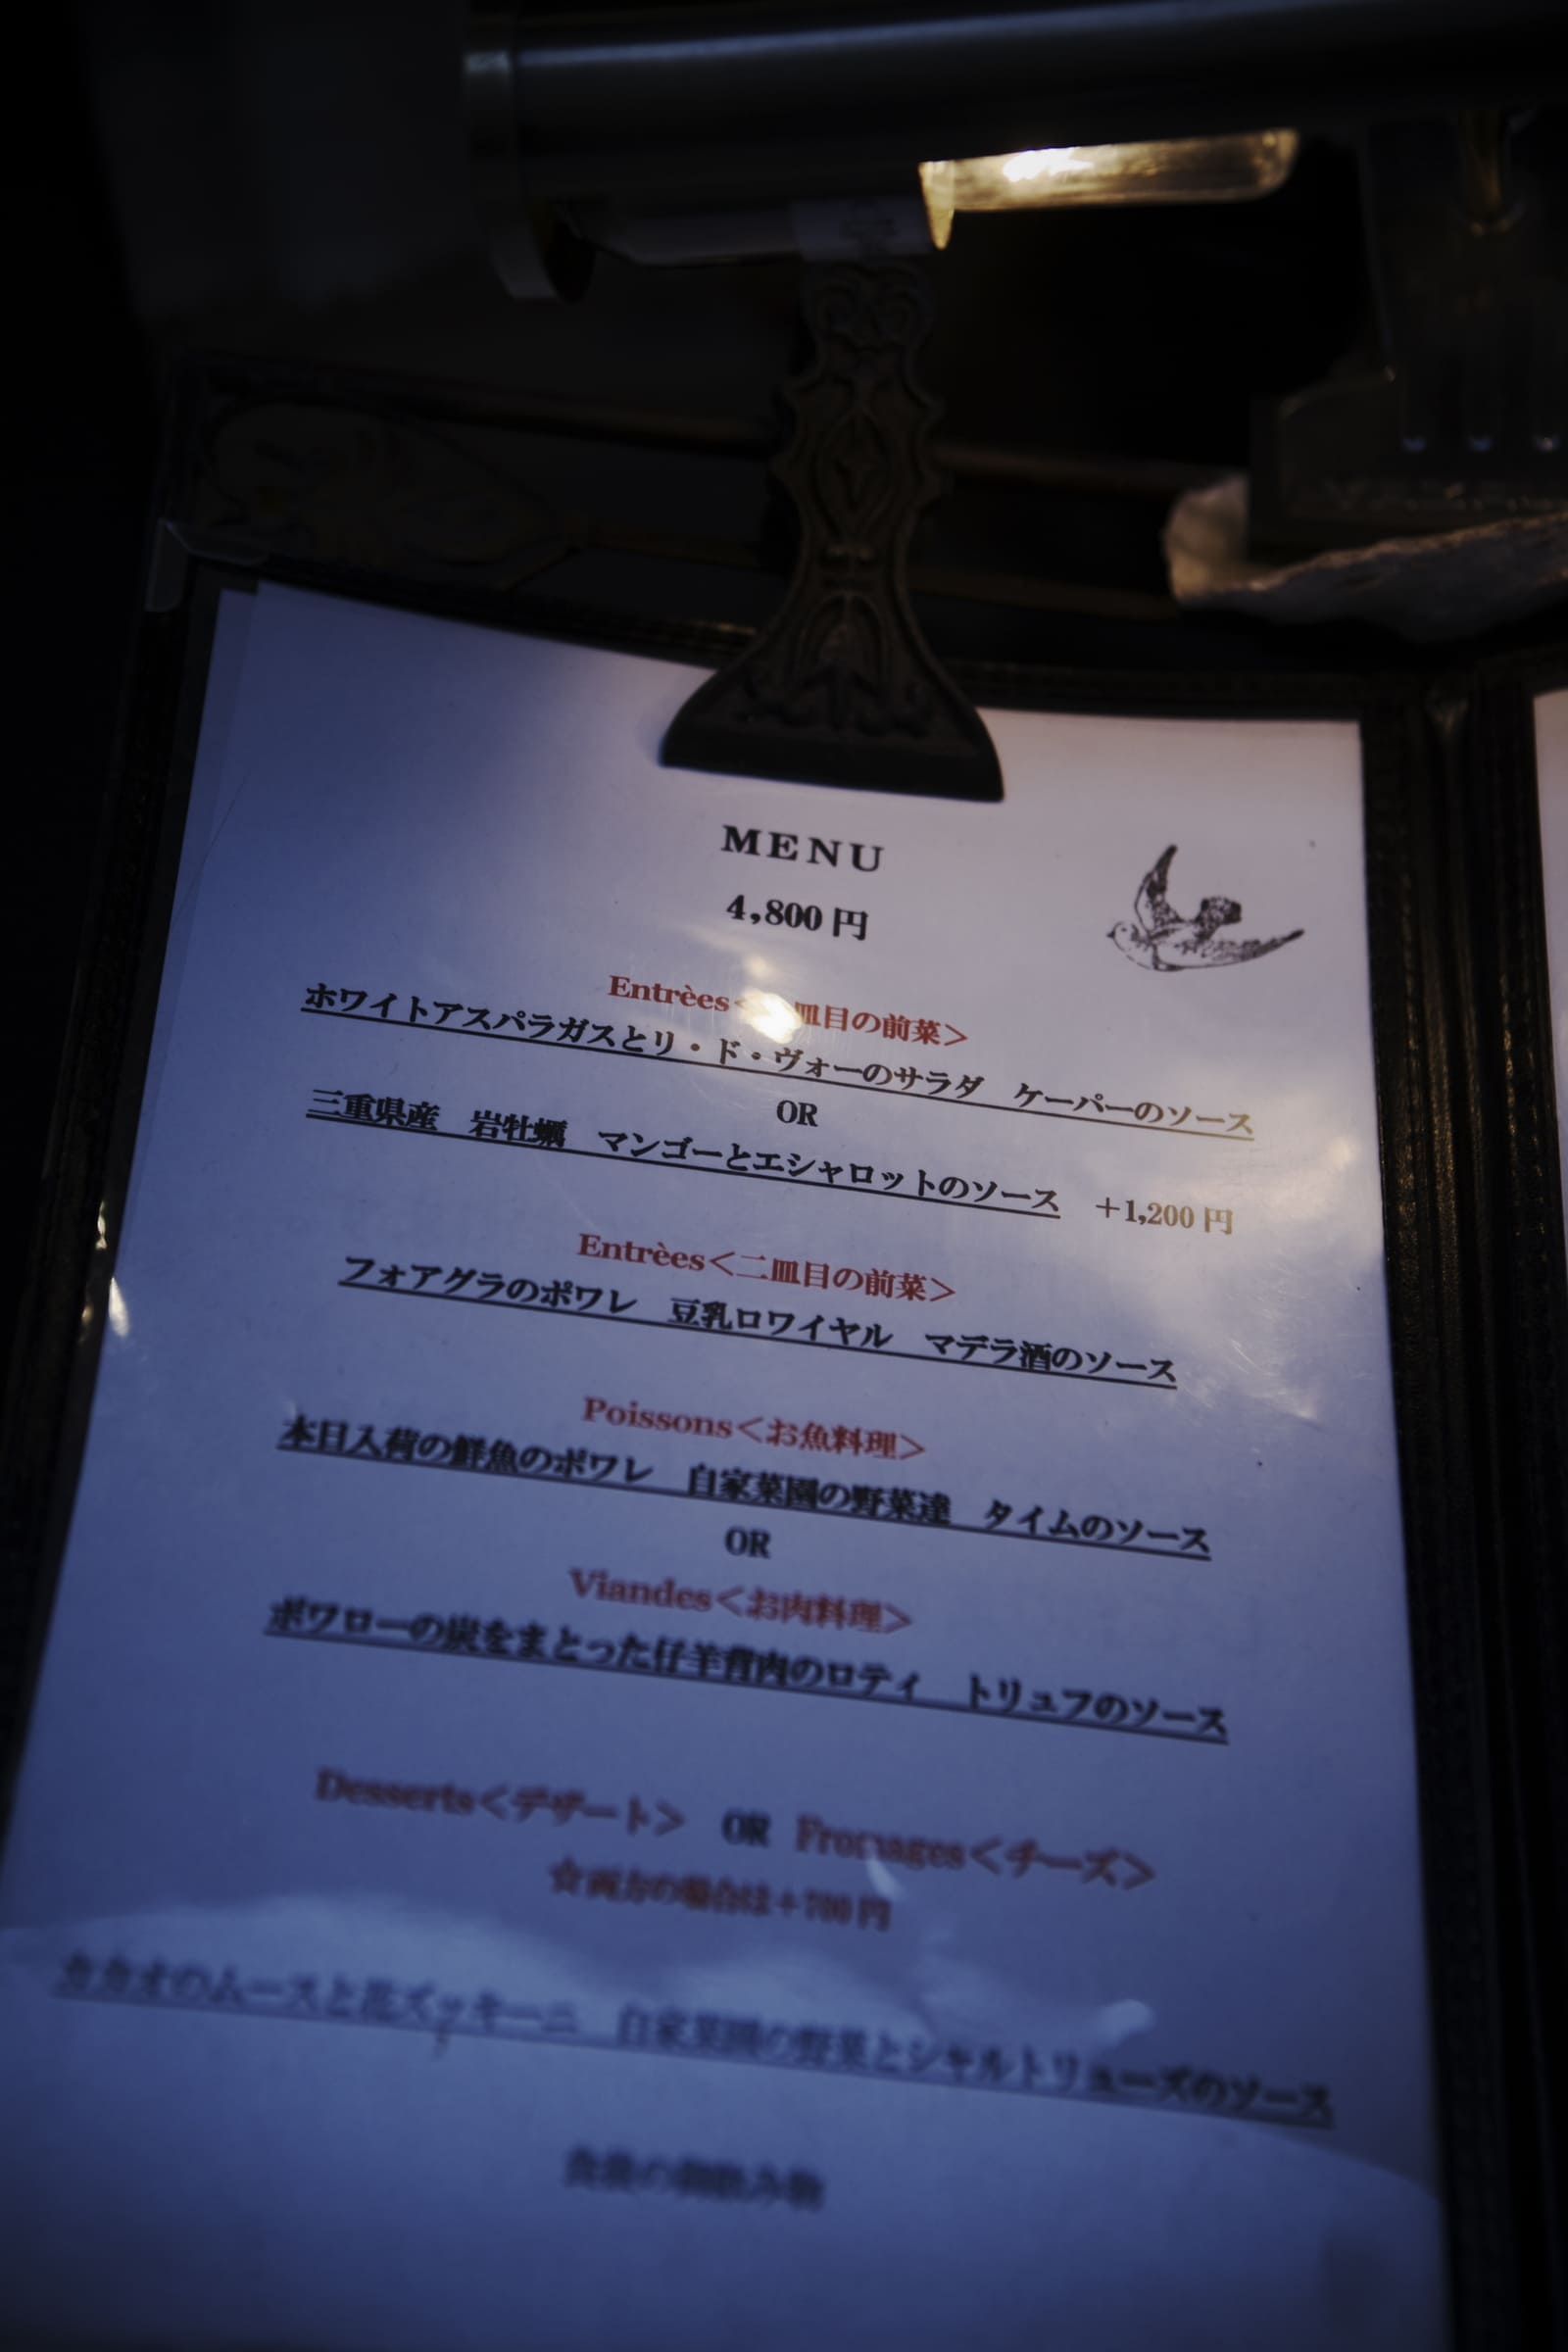 MENU
4,800 円
Entrèes< 皿目の前菜>
ホワイトアスパラガスとリ・ド・ヴォーのサラダ ケーパーのソース
OR
三重県産 岩牡蠣 マンゴーとエシャロットのソース +1,200 円
Entrèes<二皿目の前菜>
フォアグラのポワレ 豆乳ロワイヤル マデラ酒のソース
Poissons<お魚料理>
本日入荷の鮮魚のポワレ 自家菜園の野菜達 タイムのソース
OR
Viandes<お肉料理>
ポワローの炭をまとった仔羊背肉のロティ トリュフのソース
Desserts<デザート> OR Fromages<チーズ>
☆両方の場合は+700 円
カカオのムースと花ズッキーニ 自家菜園の野菜とシャルトリューズのソース
食後の御飲み物